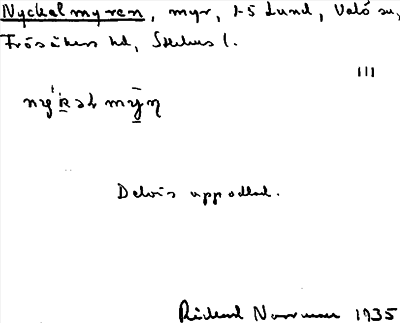 Nyckelmyren, myr, 1-5 Lund, Valö sn,
Frösåkers hd, Sthlms l.
III
Delvis uppodlad.
Rickard Norrman 1935